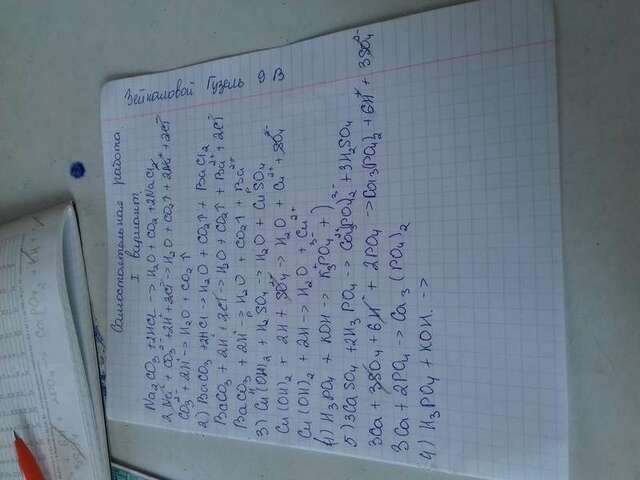 Зейналовой Гузель 9 В
Самостоятельная работа
I вариант.
Na₂CO₃ + 2HCl → H₂O + CO₂ + 2NaCl
2Na⁺ + CO₃²⁻ + 2H⁺ + 2Cl⁻ → H₂O + CO₂↑ + 2Na⁺ + 2Cl⁻
CO₃²⁻ + 2H⁺ → H₂O + CO₂↑
2) BaCO₃ + 2HCl → H₂O + CO₂↑ + BaCl₂
BaCO₃ + 2H⁺ + 2Cl⁻ → H₂O + CO₂↑ + Ba²⁺ + 2Cl⁻
BaCO₃ + 2H⁺ → H₂O + CO₂↑ + Ba²⁺
3) Cu(OH)₂ + H₂SO₄ → H₂O + CuSO₄
Cu(OH)₂ + 2H + SO₄ → H₂O + Cu²⁺ + SO₄²⁻
Cu(OH)₂ + 2H → H₂O + Cu²⁺
4) H₃PO₄ + KOH → K₃PO₄ + )
5) 3CaSO₄ + 2H₃PO₄ → Ca₃(PO₄)₂ + 3H₂SO₄
3Ca + 3SO₄ + 6H⁺ + 2PO₄ → Ca₃(PO₄)₂ + 6H⁺ + 3SO₄²⁻
3Ca + 2PO₄ → Ca₃(PO₄)₂
4) H₃PO₄ + KOH. →